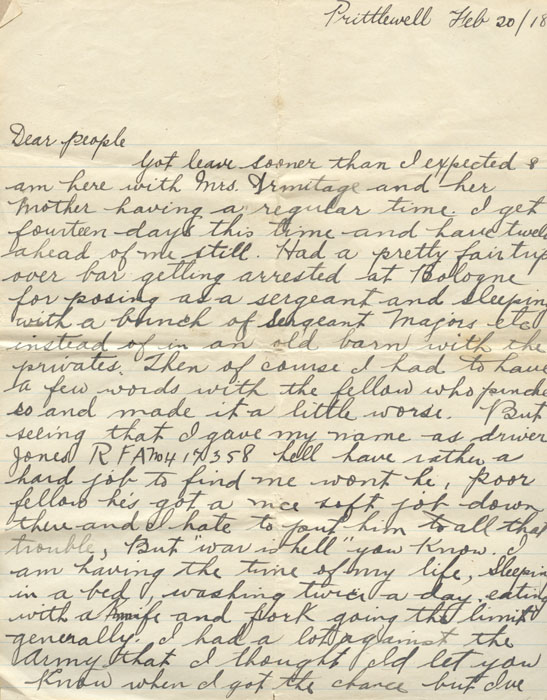 Prittlewell Feb 20/18
Dear people
Got leave sooner than I expected &
am here with Mrs. Armitage and her
Mother having a regular time. I get
fourteen days this time and have twelve
ahead of me still. Had a pretty fair trip
over bar getting arrested at Bologne
for posing as a sergeant and sleeping
with a bunch of Sergeant Majors etc
instead of in an old barn with the
privates. Then of course I had to have
a few words with the fellow who pinche
so and made it a little worse. But
seeing that I gave my name as driver
Jones R F A No 417358 hell have rather a
hard job to find me wont he, poor
fellow he's got a nice soft job down
there and I hate to put him to all that
trouble, But "war is hell" you know. I
am having the time of my life, Sleepin
in a bed, washing twice a day, eating
with a knife and fork going the limit
generally. I had a lot against the
Army that I thought I'd let you
know when I got the chance but I've